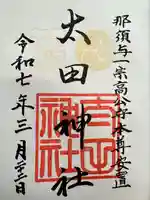 那須与一宗高公守本尊安置
太田神社
令和七年三月二十二日
太田神社